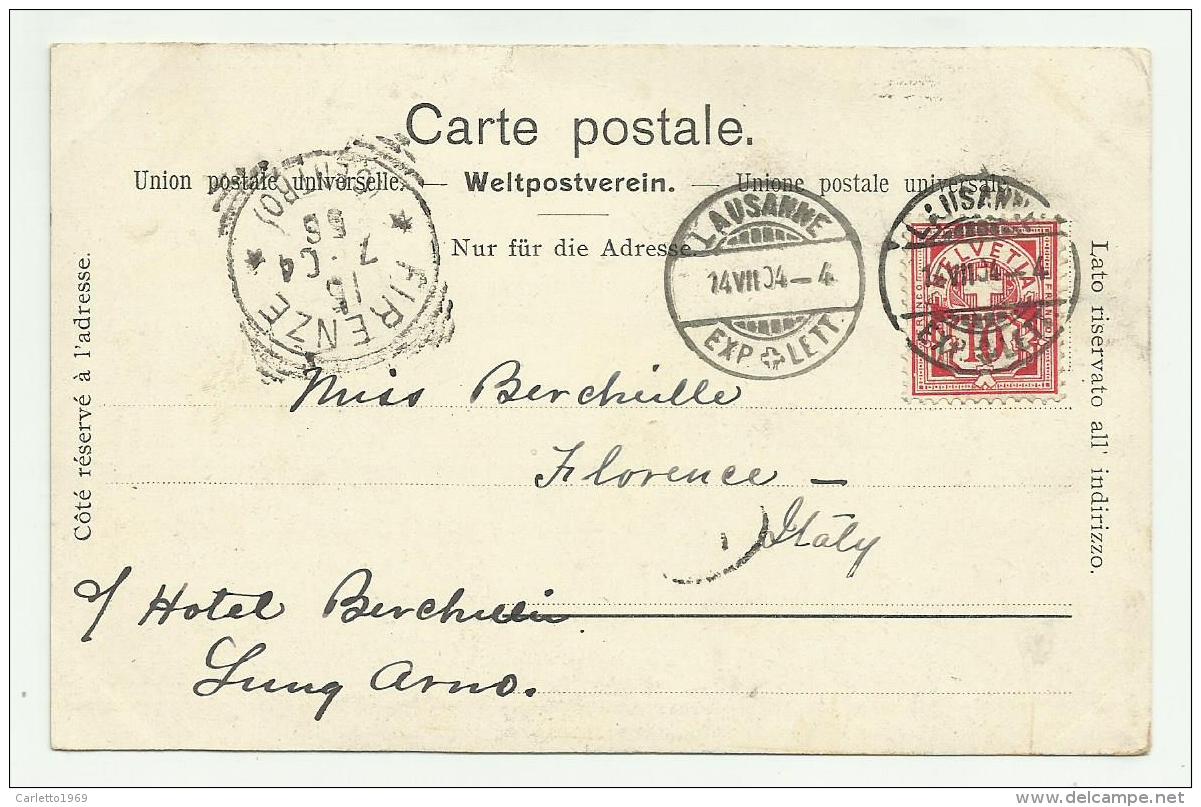 Carte postale.
Union postale universelle. — Weltpostverein. — Unione postale universale.
Nur für die Adresse.
Côté réservé à l'adresse.
Lato riservato all' indirizzo.
FIRENZE
7-04
LAUSANNE
14 VII 04 – 4
EXP LETT.
LAUSANNE
14 VII 04 – 4
EXP LETT.
HELVETIA
FRANCO
10
Miss Berchielle
Florence –
Italy
c/ Hotel Berchielli
Lung Arno.
Carletto1969
www.delcampe.net